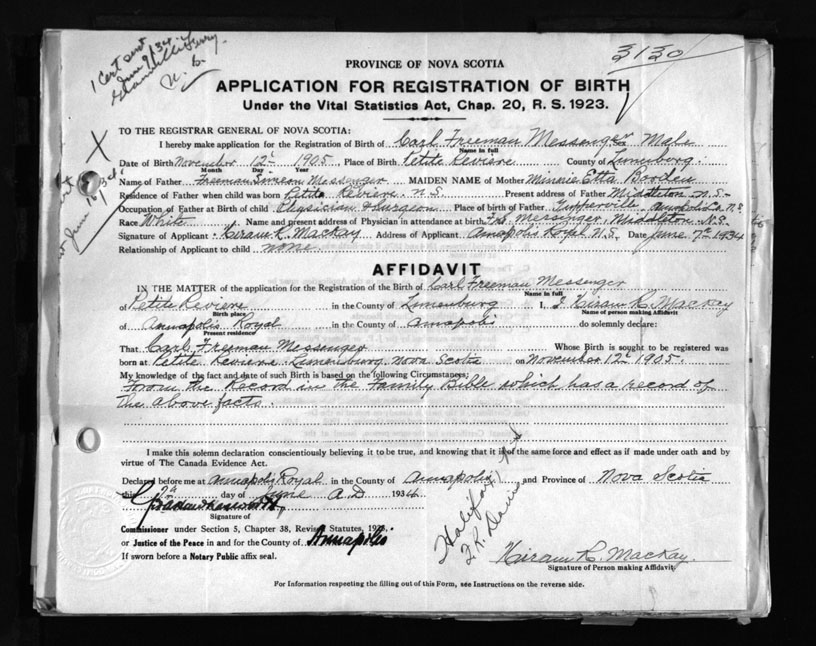 1 Cert sent
June 7/34
N. S.
3130
PROVINCE OF NOVA SCOTIA
APPLICATION FOR REGISTRATION OF BIRTH
Under the Vital Statistics Act, Chap. 20, R. S. 1923.
TO THE REGISTRAR GENERAL OF NOVA SCOTIA:
I hereby make application for the Registration of Birth of Carl Freeman Messenger Male
Name in full
Date of Birth November 12th 1905 Place of Birth Petite Reviere County of Lunenburg.
Month Day Year
Name of Father Freeman Simeon Messenger MAIDEN NAME of Mother Minnie Etta
Residence of Father when child was born Petite Reviere N.S. Present address of Father Middleton N.S.
Occupation of Father at Birth of child Physician & Surgeon Place of birth of Father Tupperville Annapolis N.S.
Race White Name and present address of Physician in attendance at birth Messenger Middleton N.S.
Signature of Applicant Hiram R. MacKay Address of Applicant Annapolis Royal N.S. Date June 7th 1934
Relationship of Applicant to child none.
AFFIDAVIT
IN THE MATTER of the application for the Registration of the Birth of Carl Freeman Messenger
Name in full
of Petite Reviere in the County of Lunenburg I, Hiram R. MacKay
Birth place Name of person making Affidavit
of Annapolis Royal in the County of Annapolis do solemnly declare:
Present residence
That Carl Freeman Messenger Whose Birth is sought to be registered was
born at Petite Reviere Lunenburg Nova Scotia on November 12th 1905.
My knowledge of the fact and date of such Birth is based on the following Circumstances:
From the Record in the Family Bible which has a record of
the above facts.
I make this solemn declaration conscientiously believing it to be true, and knowing that it is of the same force and effect as if made under oath and by
virtue of The Canada Evidence Act.
Declared before me at Annapolis Royal in the County of Annapolis and Province of Nova Scotia
this day of June A.D. 1934
Signature of
Commissioner under Section 5, Chapter 38, Revised Statutes, 1923.
or Justice of the Peace in and for the County of Annapolis
If sworn before a Notary Public affix seal.
Halifax
F. R. Davis
Hiram R. MacKay
Signature of Person making Affidavit
For Information respecting the filling out of this Form, see Instructions on the reverse side.